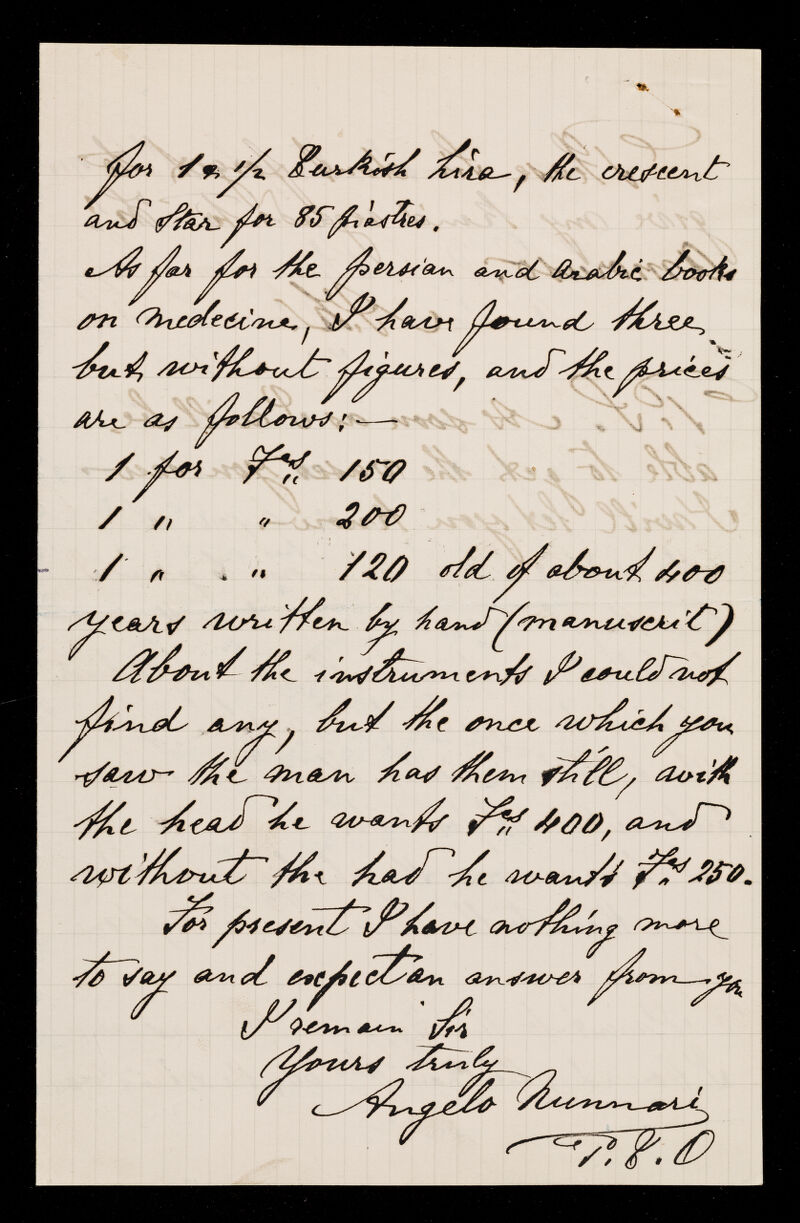 for 1 & 1/2 Turkish lira, the crescent
and Star for 85 piastres.
As far for the persian and arabic books
on medecine, I have found three
but without figures, and the prices
are as follows:—
1 for Fcs 150
1 " " 200
1 " " 120 old of about 400
years written by hand (manuscrit)
About the instruments I could not
find any, but the once which you
saw the man has them still, with
the head he wants Fcs 400, and
without the had he wants Fcs 250.
For present I have nothing more
to say and expect an answer from you
I remain Sir
Yours truly
Angelo Nunnari
P.T.O